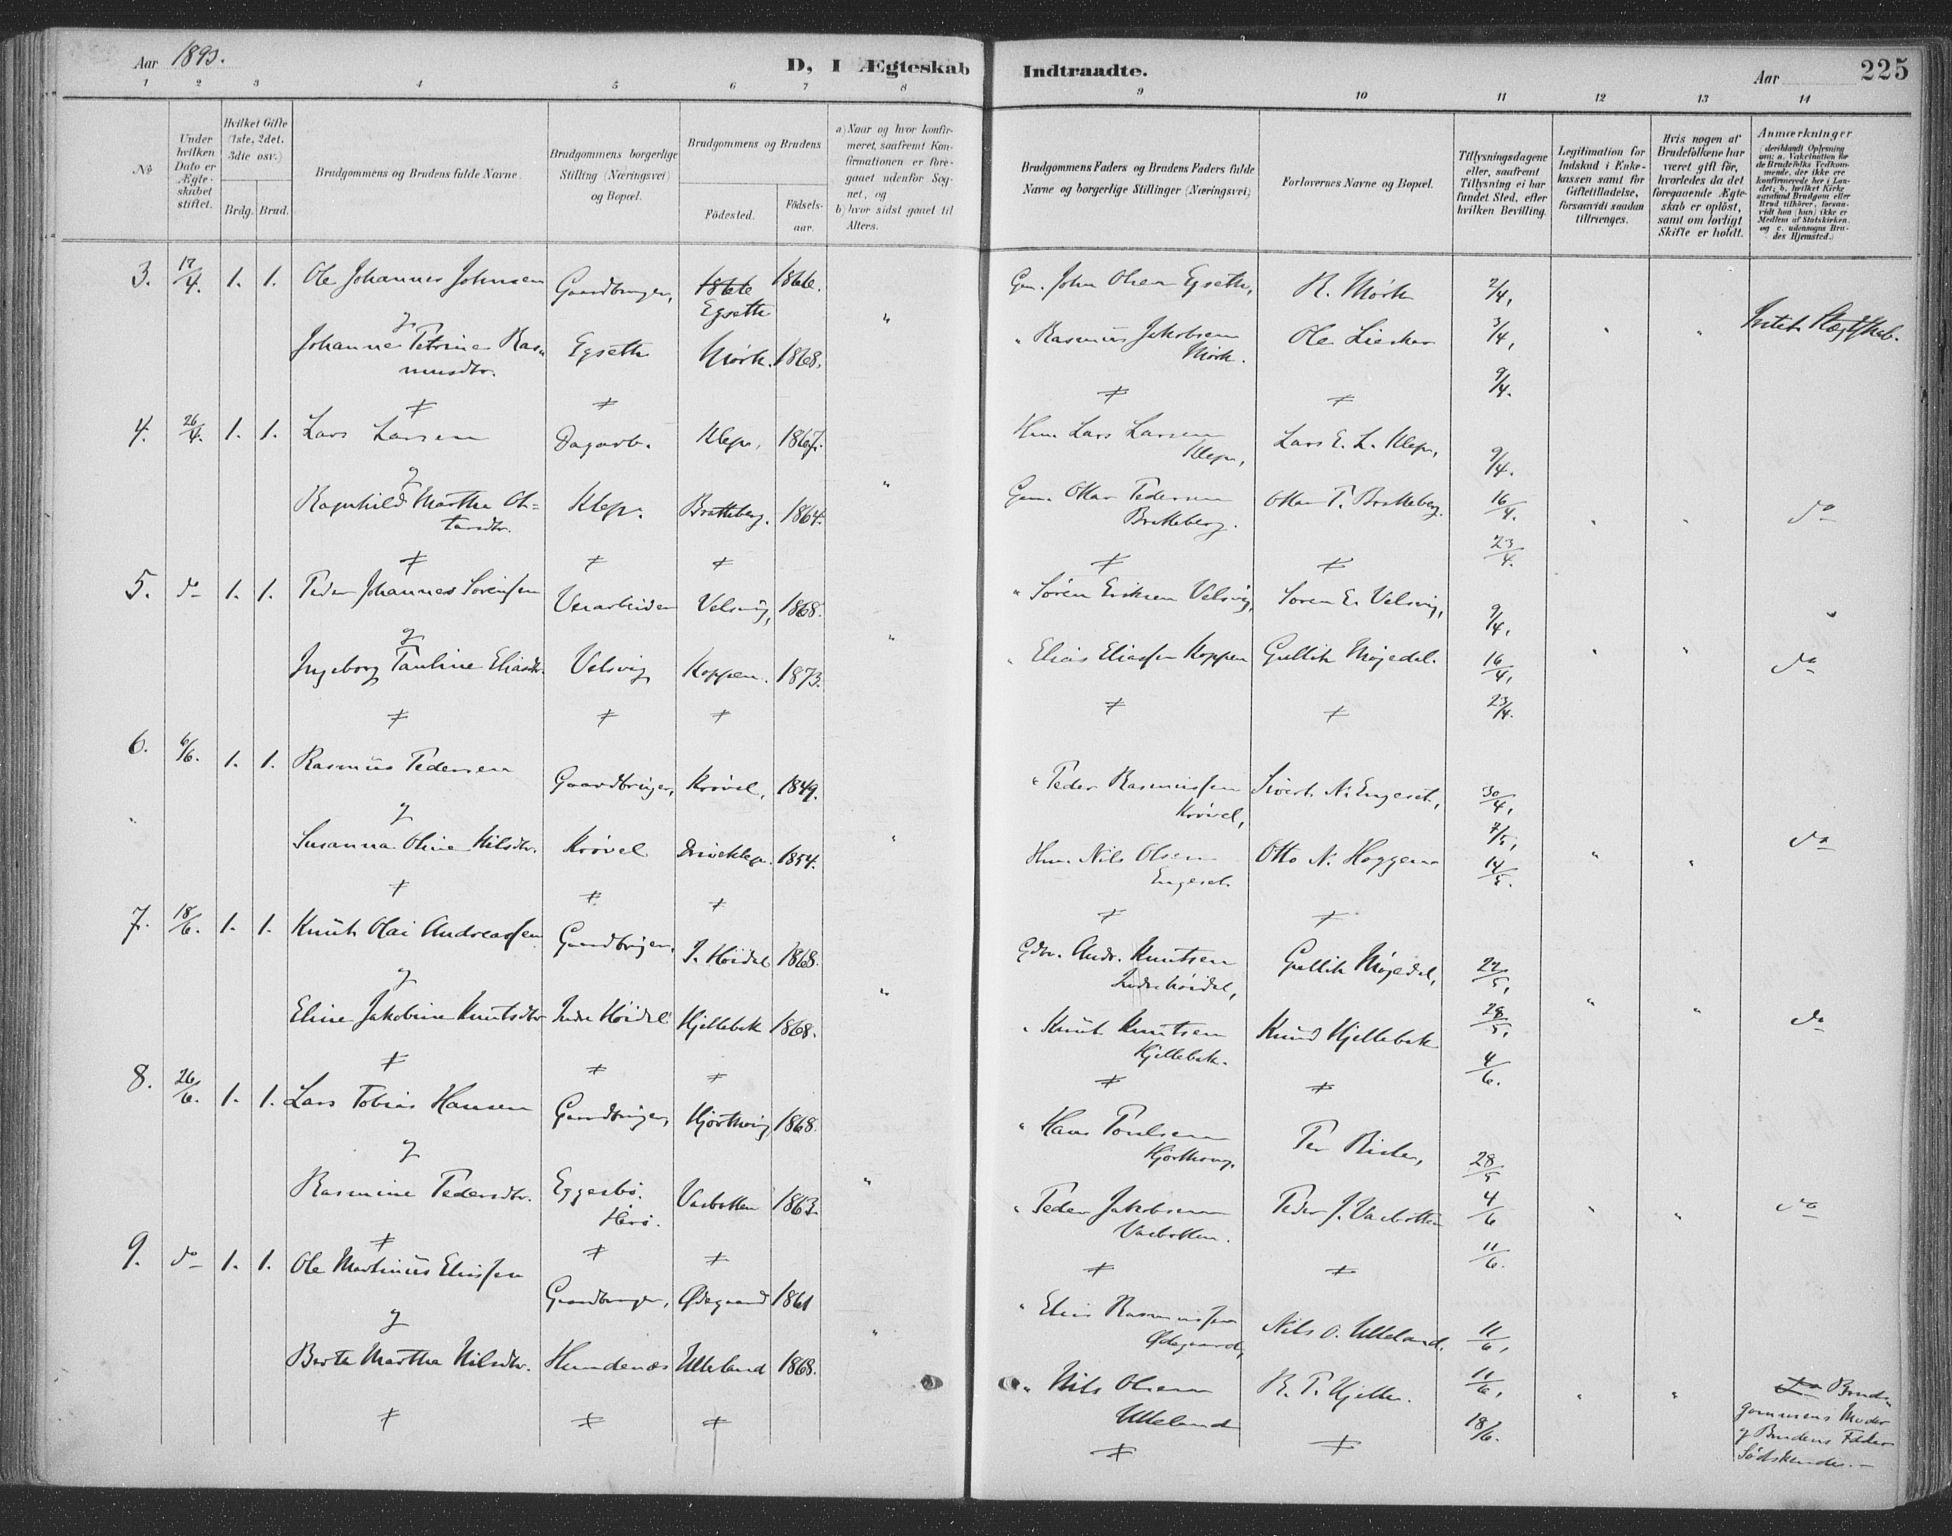 Aar 1893.
D, I Ægteskab Indtraadte.
Aar 225
1 2 3 4 5 6 7 8 9 10 11 12 13 14
No
Under hvilken Dato er Ægteskabet stiftet.
Hvilket Gifte (1ste, 2det, 3die osv.)
Brdg. Brud.
Brudgommens og Brudens fulde Navne.
Brudgommens borgerlige Stilling (Næringsvei) og Bopæl.
Brudgommens og Brudens
Födested. Födselsaar.
a) Naar og hvor konfirmeret, saafremt Konfirmationen er foregaaet udenfor Sognet, og
b) hvor sidst gaaet til Alters.
Brudgommens Faders og Brudens Faders fulde Navne og borgerlige Stillinger (Næringsvei)
Forlovernes Navne og Bopæl.
Tillysningsdagene eller, saafremt Tillysning ei har fundet Sted, efter hvilken Bevilling.
Legitimation for Indskud i Enkekassen samt for Giftetilladelse, forsaavidt saadan tiltrænges.
Hvis nogen af Brudefolkene har været gift för, hvorledes da det foregaaende Ægteskab er oplöst, samt om lovligt Skifte er holdt.
Anmærkninger
3. 17/4. 1. 1. Ole Johannes Johnsen Gaardbruger, 1866 1866. Gm. John Olsen Egseth, R. Mörk 2/4,
Egseth
g
Johanne Petrine Rasmusdtr. Egseth Mörk. 1868. " Rasmus Jakobsen Mörk. Ole Liaskar 3/4,
9/4.
4. 26/4. 1. 1. Lars Larsen Dagarb. Klep, 1867. Hm. Lars Larsen Klep, Lars E. L. Klep, 9/4.
g
Ragnhild Martha Ottarsdtr. Klep. Bratteberg. 1864. Gm. Ottar Pedersen Brekkeberg. Ottar P. Brekkeberg. 16/4. do
23/4.
5. do 1. 1. Peder Johannes Sörensen Velsvig, 1868. " Sören Eriksen Velsvig, Sören E. Velsvig, 9/4,
g
Ingeborg Pauline Eliasdtr. Velsvig Koppen. 1873. " Elias Eliassen Koppen Gullik Møjedal. 16/4, do
23/4.
6. 6/6. 1. 1. Rasmus Pedersen Gaardbruger, Krövel, 1849. " Peder Rasmussen Krövel, Sivert N. Engeset, 30/4,
g
Susanna Oline Nilsdtr. Krövel Driveklep. 1854. Hm. Nils Olsen Engeset. Otto N. Haggen 7/5, do
14/5.
7. 18/6. 1. 1. Knut Olai Andreassen Gaardbruger, I. Höidal 1868. Gdbr. Andr. Knutsen Indrehöidal, Gullik Møjedal, 22/5,
g
Eline Jakobine Knutsdtr Indre Höidal Kjellebak 1868. " Knut Knutsen Kjellebak. Knud Kjellebak 28/5, do
4/6.
8. 26/6. 1. 1. Lars Tobias Hansen Gaardbruger, Hjorthvig 1868. " Hans Poulsen
28/5
g
Rasmine Pedersdtr. Eggesbö. Herö. Vasbotten 1863. " Peder Jakobsen Vasbotten. Peder J. Vasbotten 4/6 do
11/6.
9. do 1. 1. Ole Martinus Eliassen Gaardbruger, Ødegaard 1861 " Elias Rasmussen Ødegaard, Nils O. Ulleland. 11/6,
g
Berte Martha Nilsdtr. Ulleland 1868. " Nils Olsen Ulleland R. P. Kjelle. 11/6,
18/6.
Brudgommens Moder g Brudens Fader Södskende.—